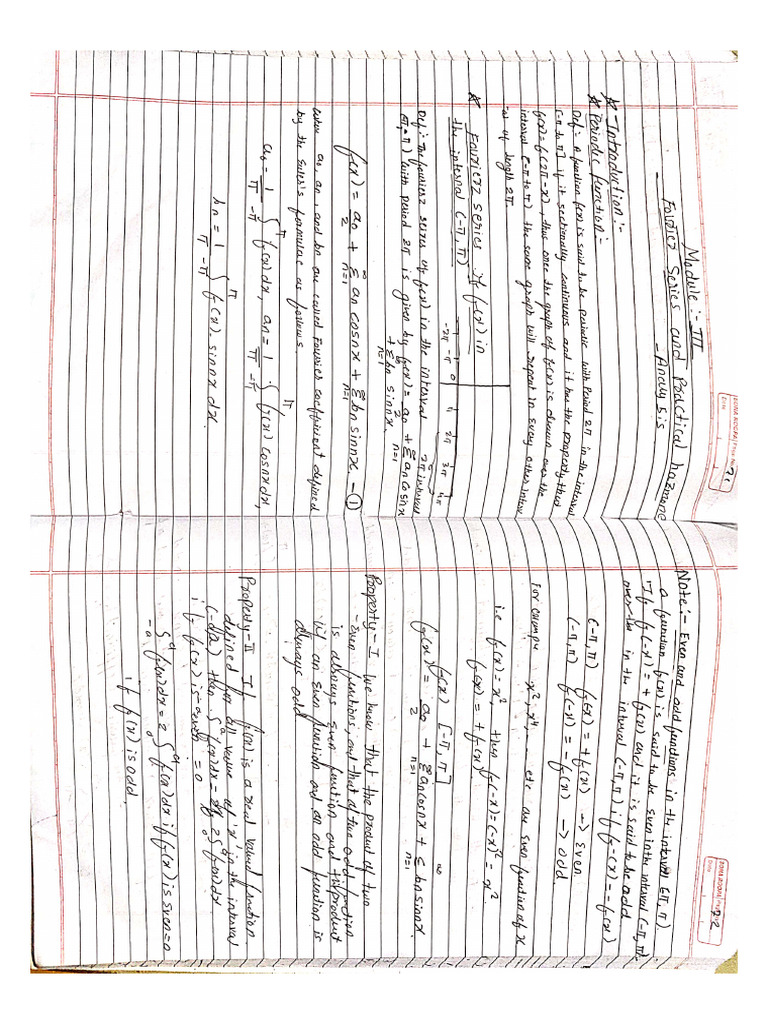 Module :- III
Fourier Series and Practical harmonic
- Analysis
* Introduction :-
* Periodic function :-
Def:- A function f(x) is said to be periodic with Period 2π in the interval
(-π to π] if it sectionally continuous and it has the property third
f(x) = f(2π-x), thus once the graph of f(x) is drawn over the
interval (-π to π) the same graph will repeat in every other inter
-val of length 2π.
* Fourier series of f(x) in
the interval (-π, π)
-2π -π 0 π 2π 3π 4π
Def:- The fourier series of f(x) in the interval
(-π, π) with period 2π is given by f(x) = a0/2 + Σ an cosnx
+ Σ bn sinnx.
n=1
f(x) = a0/2 + Σ an cosnx + Σ bn sinnx. - ①
n=1 n=1
when a0, an, and bn are called Fourier coefficient defined
by the Euler's formulae as follows.
a0 = 1/π ∫ f(x) dx, an = 1/π ∫ f(x) cosnx dx,
bn = 1/π ∫ f(x) sinnx dx.
Note:- Even and odd functions in the interval (-π, π)
a function f(x) is said to be even in the interval (-π, π)
if f(-x) = + f(x) and it is said to be odd
over the in the interval (-π, π) if f(-x) = - f(x)
(-π, π) f(-x) = + f(x) → Even
(-π, π) f(-x) = - f(x) → odd.
For example x², x⁴, ... etc are even function of x
i.e f(x) = x², then f(-x) = (-x)² = x²
f(-x) = + f(x).
f(x) [-π, π]
f(x) = a0/2 + Σ an cosnx + Σ bn sinnx.
n=1 n=1
Property - I We know that the product of two
- Even functions, and that of two odd function
is always even function and the product
of an even function and an odd function is
always odd
Property - II If f(x) is a real valued function
defined for all value of x in the interval
(-a, a) then ∫ f(x) dx = 2 ∫ f(x) dx
if f(x) is even = 0
∫ f(x) dx = 2 ∫ f(x) dx if f(x) is even = 0
if f(x) is odd.